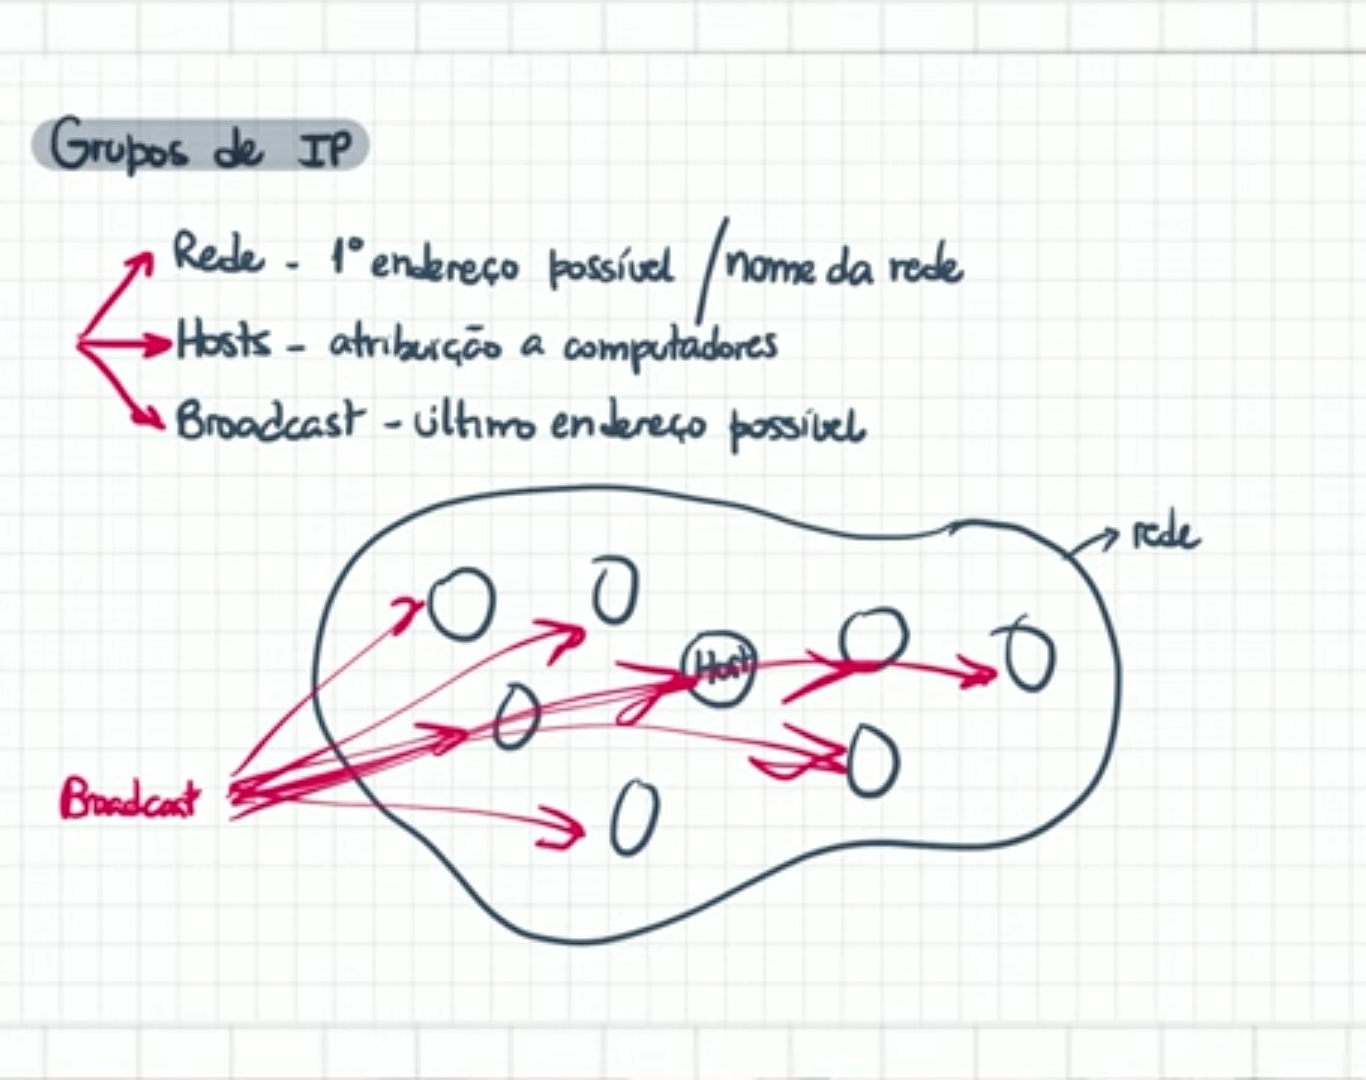 Grupos de IP
Rede - 1º endereço possível / nome da rede
Hosts - atribuição a computadores
Broadcast - último endereço possível
rede
Host
Broadcast